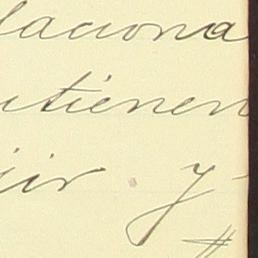 laciona
utienen
jir y